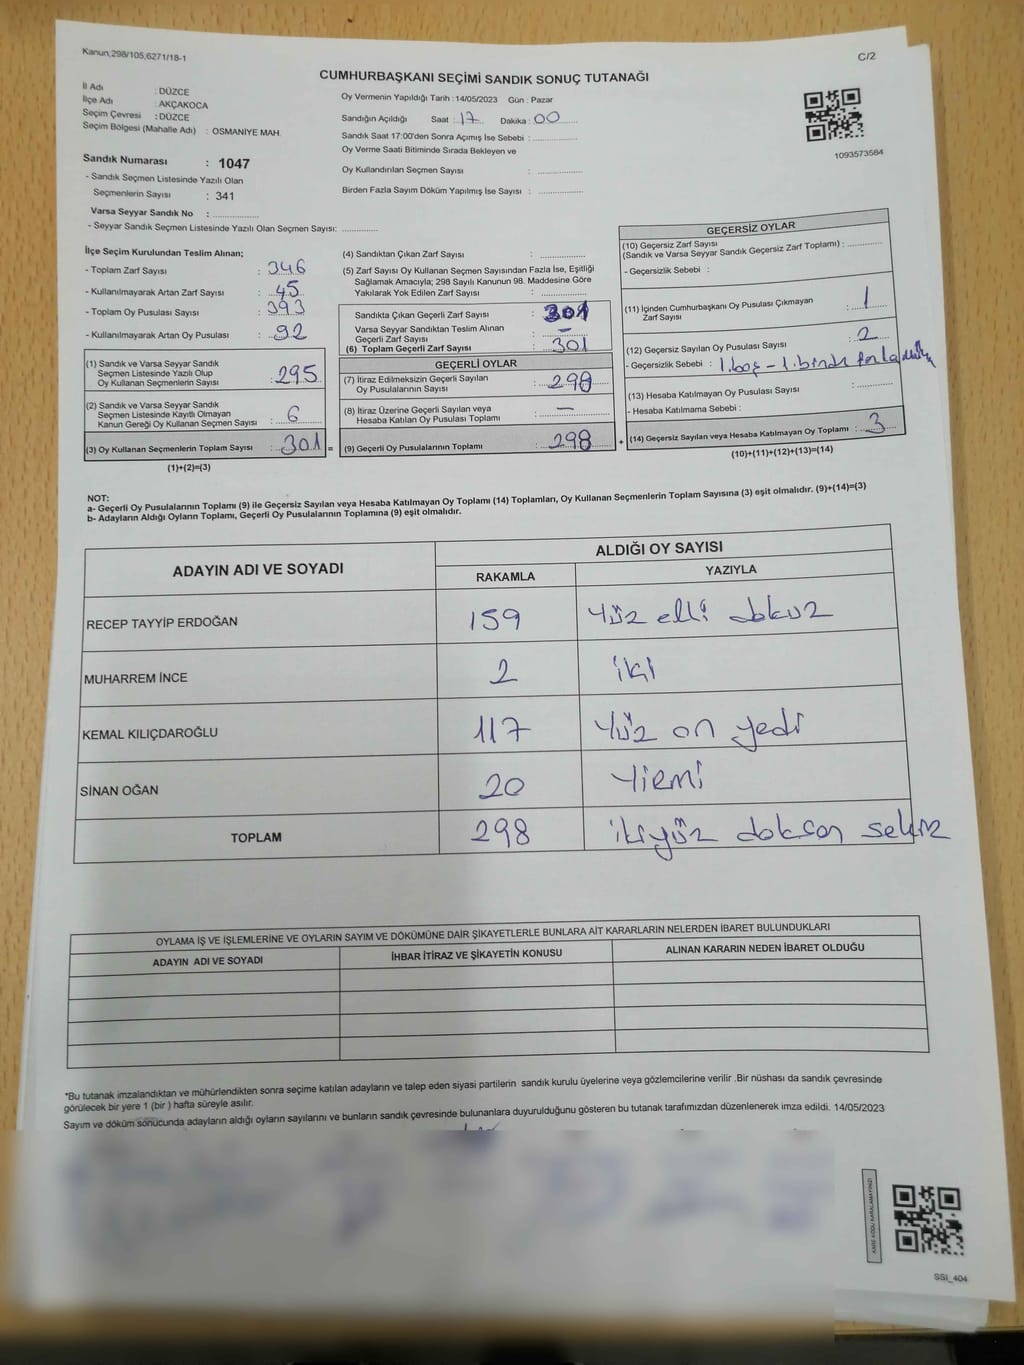 Kanun;298/105,6271/18-1
C/2
CUMHURBAŞKANI SEÇİMİ SANDIK SONUÇ TUTANAĞI
İl Adı : DÜZCE
İlçe Adı : AKÇAKOCA
Seçim Çevresi : DÜZCE
Seçim Bölgesi (Mahalle Adı) : OSMANİYE MAH.
Sandık Numarası : 1047
- Sandık Seçmen Listesinde Yazılı Olan
Seçmenlerin Sayısı : 341
Varsa Seyyar Sandık No : ................
- Seyyar Sandık Seçmen Listesinde Yazılı Olan Seçmen Sayısı: ............
Oy Vermenin Yapıldığı Tarih :14/05/2023 Gün : Pazar
Sandığın Açıldığı Saat : 17 Dakika : 00
Sandık Saat 17:00'den Sonra Açımış İse Sebebi : ................
Oy Verme Saati Bitiminde Sırada Bekleyen ve
Oy Kullandırılan Seçmen Sayısı : ................
Birden Fazla Sayım Döküm Yapılmış İse Sayısı : ................
1093573584
İlçe Seçim Kurulundan Teslim Alınan;
- Toplam Zarf Sayısı : 346
- Kullanılmayarak Artan Zarf Sayısı : 45
- Toplam Oy Pusulası Sayısı : 393
- Kullanılmayarak Artan Oy Pusulası : 92
(1) Sandık ve Varsa Seyyar Sandık
Seçmen Listesinde Yazılı Olup
Oy Kullanan Seçmenlerin Sayısı : 295
(2) Sandık ve Varsa Seyyar Sandık
Seçmen Listesinde Kayıtlı Olmayan
Kanun Gereği Oy Kullanan Seçmen Sayısı : 6
(3) Oy Kullanan Seçmenlerin Toplam Sayısı : 301 =
(1)+(2)=(3)
(4) Sandıktan Çıkan Zarf Sayısı : ................
(5) Zarf Sayısı Oy Kullanan Seçmen Sayısından Fazla İse, Eşitliği
Sağlamak Amacıyla; 298 Sayılı Kanunun 98. Maddesine Göre
Yakılarak Yok Edilen Zarf Sayısı : ................
Sandıkta Çıkan Geçerli Zarf Sayısı : 301
Varsa Seyyar Sandıktan Teslim Alınan
Geçerli Zarf Sayısı : —
(6) Toplam Geçerli Zarf Sayısı : 301
GEÇERLİ OYLAR
(7) İtiraz Edilmeksizin Geçerli Sayılan
Oy Pusulalarının Sayısı : 298
(8) İtiraz Üzerine Geçerli Sayılan veya
Hesaba Katılan Oy Pusulası Toplamı : —
(9) Geçerli Oy Pusulalarının Toplamı : 298 +
GEÇERSİZ OYLAR
(10) Geçersiz Zarf Sayısı
(Sandık ve Varsa Seyyar Sandık Geçersiz Zarf Toplamı) : ............
- Geçersizlik Sebebi :
(11) İçinden Cumhurbaşkanı Oy Pusulası Çıkmayan
Zarf Sayısı : 1
(12) Geçersiz Sayılan Oy Pusulası Sayısı : 2
- Geçersizlik Sebebi : 1.boş - 1.birden fazla
(13) Hesaba Katılmayan Oy Pusulası Sayısı : ............
- Hesaba Katılmama Sebebi :
(14) Geçersiz Sayılan veya Hesaba Katılmayan Oy Toplamı : 3
(10)+(11)+(12)+(13)=(14)
NOT:
a- Geçerli Oy Pusulalarının Toplamı (9) ile Geçersiz Sayılan veya Hesaba Katılmayan Oy Toplamı (14) Toplamları, Oy Kullanan Seçmenlerin Toplam Sayısına (3) eşit olmalıdır. (9)+(14)=(3)
b- Adayların Aldığı Oyların Toplamı, Geçerli Oy Pusulalarının Toplamına (9) eşit olmalıdır.
ADAYIN ADI VE SOYADI ALDIĞI OY SAYISI
RAKAMLA YAZIYLA
RECEP TAYYİP ERDOĞAN 159 Yüz elli dokuz
MUHARREM İNCE 2 iki
KEMAL KILIÇDAROĞLU 117 Yüz on yedi
SİNAN OĞAN 20 Yirmi
TOPLAM 298 ikiyüz doksan sekiz
OYLAMA İŞ VE İŞLEMLERİNE VE OYLARIN SAYIM VE DÖKÜMÜNE DAİR ŞİKAYETLERLE BUNLARA AİT KARARLARIN NELERDEN İBARET BULUNDUKLARI
ADAYIN ADI VE SOYADI İHBAR İTİRAZ VE ŞİKAYETİN KONUSU ALINAN KARARIN NEDEN İBARET OLDUĞU
*Bu tutanak imzalandıktan ve mühürlendikten sonra seçime katılan adayların ve talep eden siyasi partilerin sandık kurulu üyelerine veya gözlemcilerine verilir .Bir nüshası da sandık çevresinde
görülecek bir yere 1 (bir ) hafta süreyle asılır.
Sayım ve döküm sonucunda adayların aldığı oyların sayılarını ve bunların sandık çevresinde bulunanlara duyurulduğunu gösteren bu tutanak tarafımızdan düzenlenerek imza edildi. 14/05/2023
KARE KODU KARALAMAYINIZ!
SSI_404